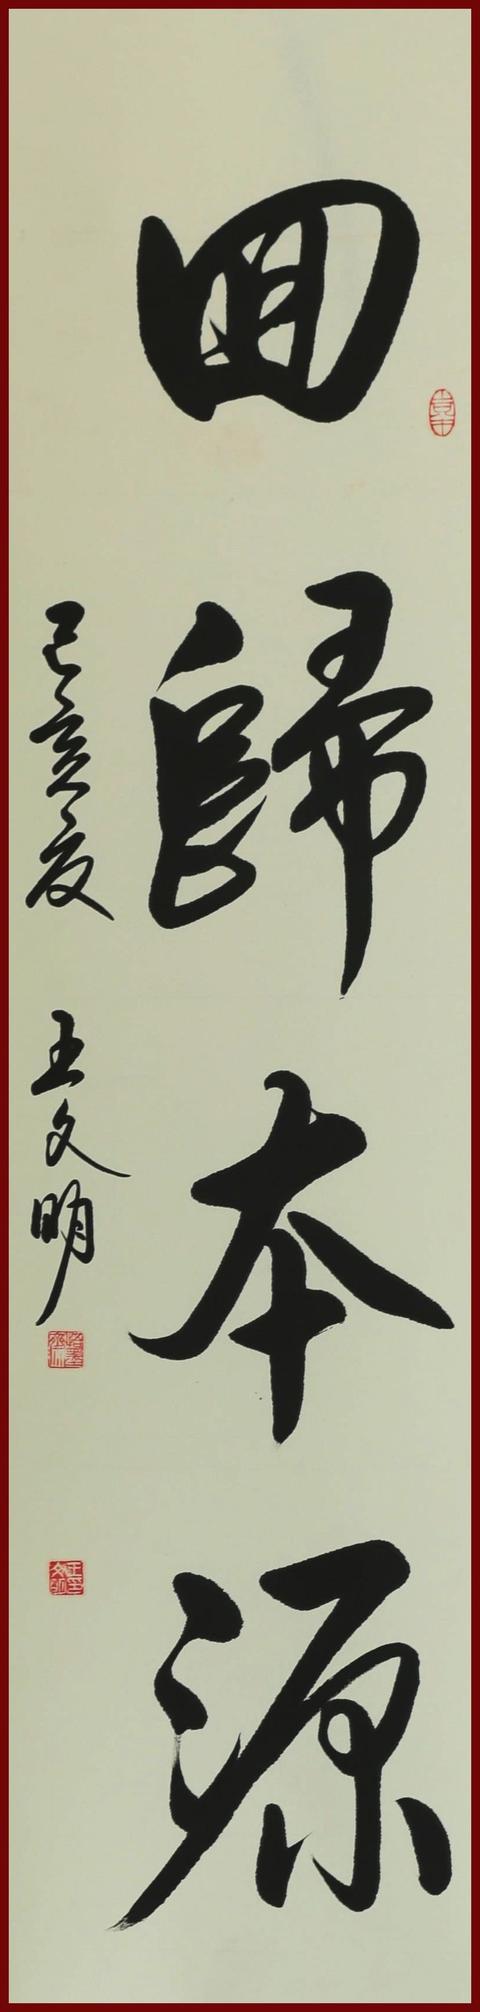 回歸本源
己亥夏
王文明